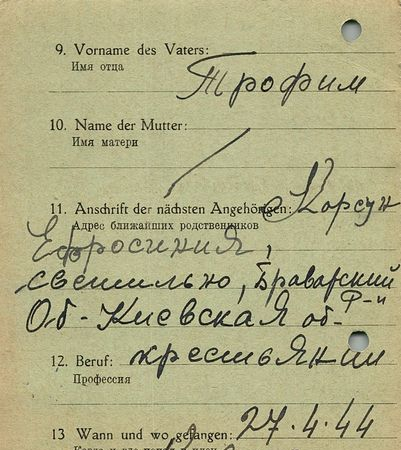 9. Vorname des Vaters:
Имя отца
Трофим
10. Name der Mutter:
Имя матери
11. Anschrift der nächsten Angehörigen: Корсун
Адрес ближайших родственников
Ефросиния,
светильно, Браварский
Р-н
Об-Киевская об-
12. Beruf: крестьянин
Профессия
13 Wann und wo gefangen: 27.4.44